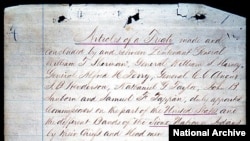 Articles of a Treaty made and
concluded by and between Lieutenant General
William T. Sherman, General William S. Harney,
General Alfred H. Terry, General C. C. Augur
J. B. Henderson, Nathaniel G. Taylor, John B
Sanborn and Samuel F. Tappan, duly appointed
Commissioners on the part of the United States and
the different Bands of the Sioux Nation of Indians
by their Chiefs and Head men
National Archive